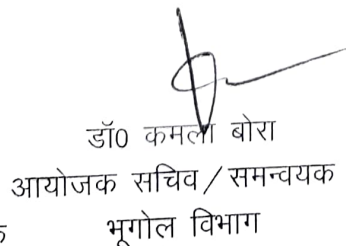 डॉ0 कमला बोरा
आयोजक सचिव / समन्वयक
क भूगोल विभाग